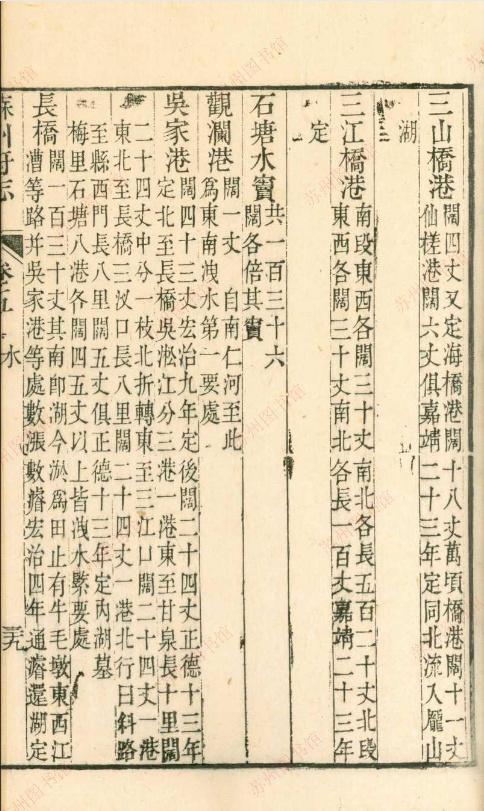 三山橋港闊四丈又定海橋港闊十八丈萬頃橋港闊十一丈
仙槎港闊六丈俱嘉靖二十三年定同北流入龐山
湖
三江橋港南段東西各闊三十丈南北各長五百二十丈北段
東西各闊三十丈南北各長一百丈嘉靖二十三年
定
石塘水竇共一百三十六
闊各倍其竇
觀瀾港闊一丈 自南仁河至此
為東南洩水第一要處
吳家港闊四十三丈宏治九年定後闊二十四丈正德十三年
定北至長橋吳淞江分三港一港東至甘泉長十里闊
二十四丈中分一枝北折轉東至三江口闊二十四丈一港
東北至長橋三汊口長八里闊二十四丈一港北行日斜路
至縣西門長八里闊五丈俱正德十三年定內湖墓
梅里石塘八港各闊四五丈以上皆洩水緊要處
長橋闊一百三十丈其南卽湖今淤為田止有牛毛墩東西江
漕等路并吳家港等處數漲數濬宏治四年通濬還湖定
蘇州府志 卷五 水 三九